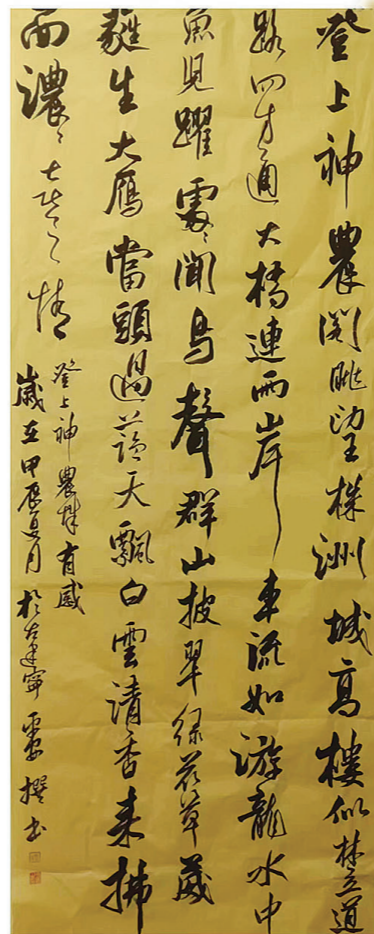 登上神農閣眺望株洲城高樓似林立道
路四方通大橋連两岸車流如游龍水中
魚見躍處々聞鳥聲群山披翠綠花草葳
蕤生大鴈當頭過藍天飄白雲清香來拂
面濃々情
登上神農有感
歲在甲辰夏月於古建寧撰书